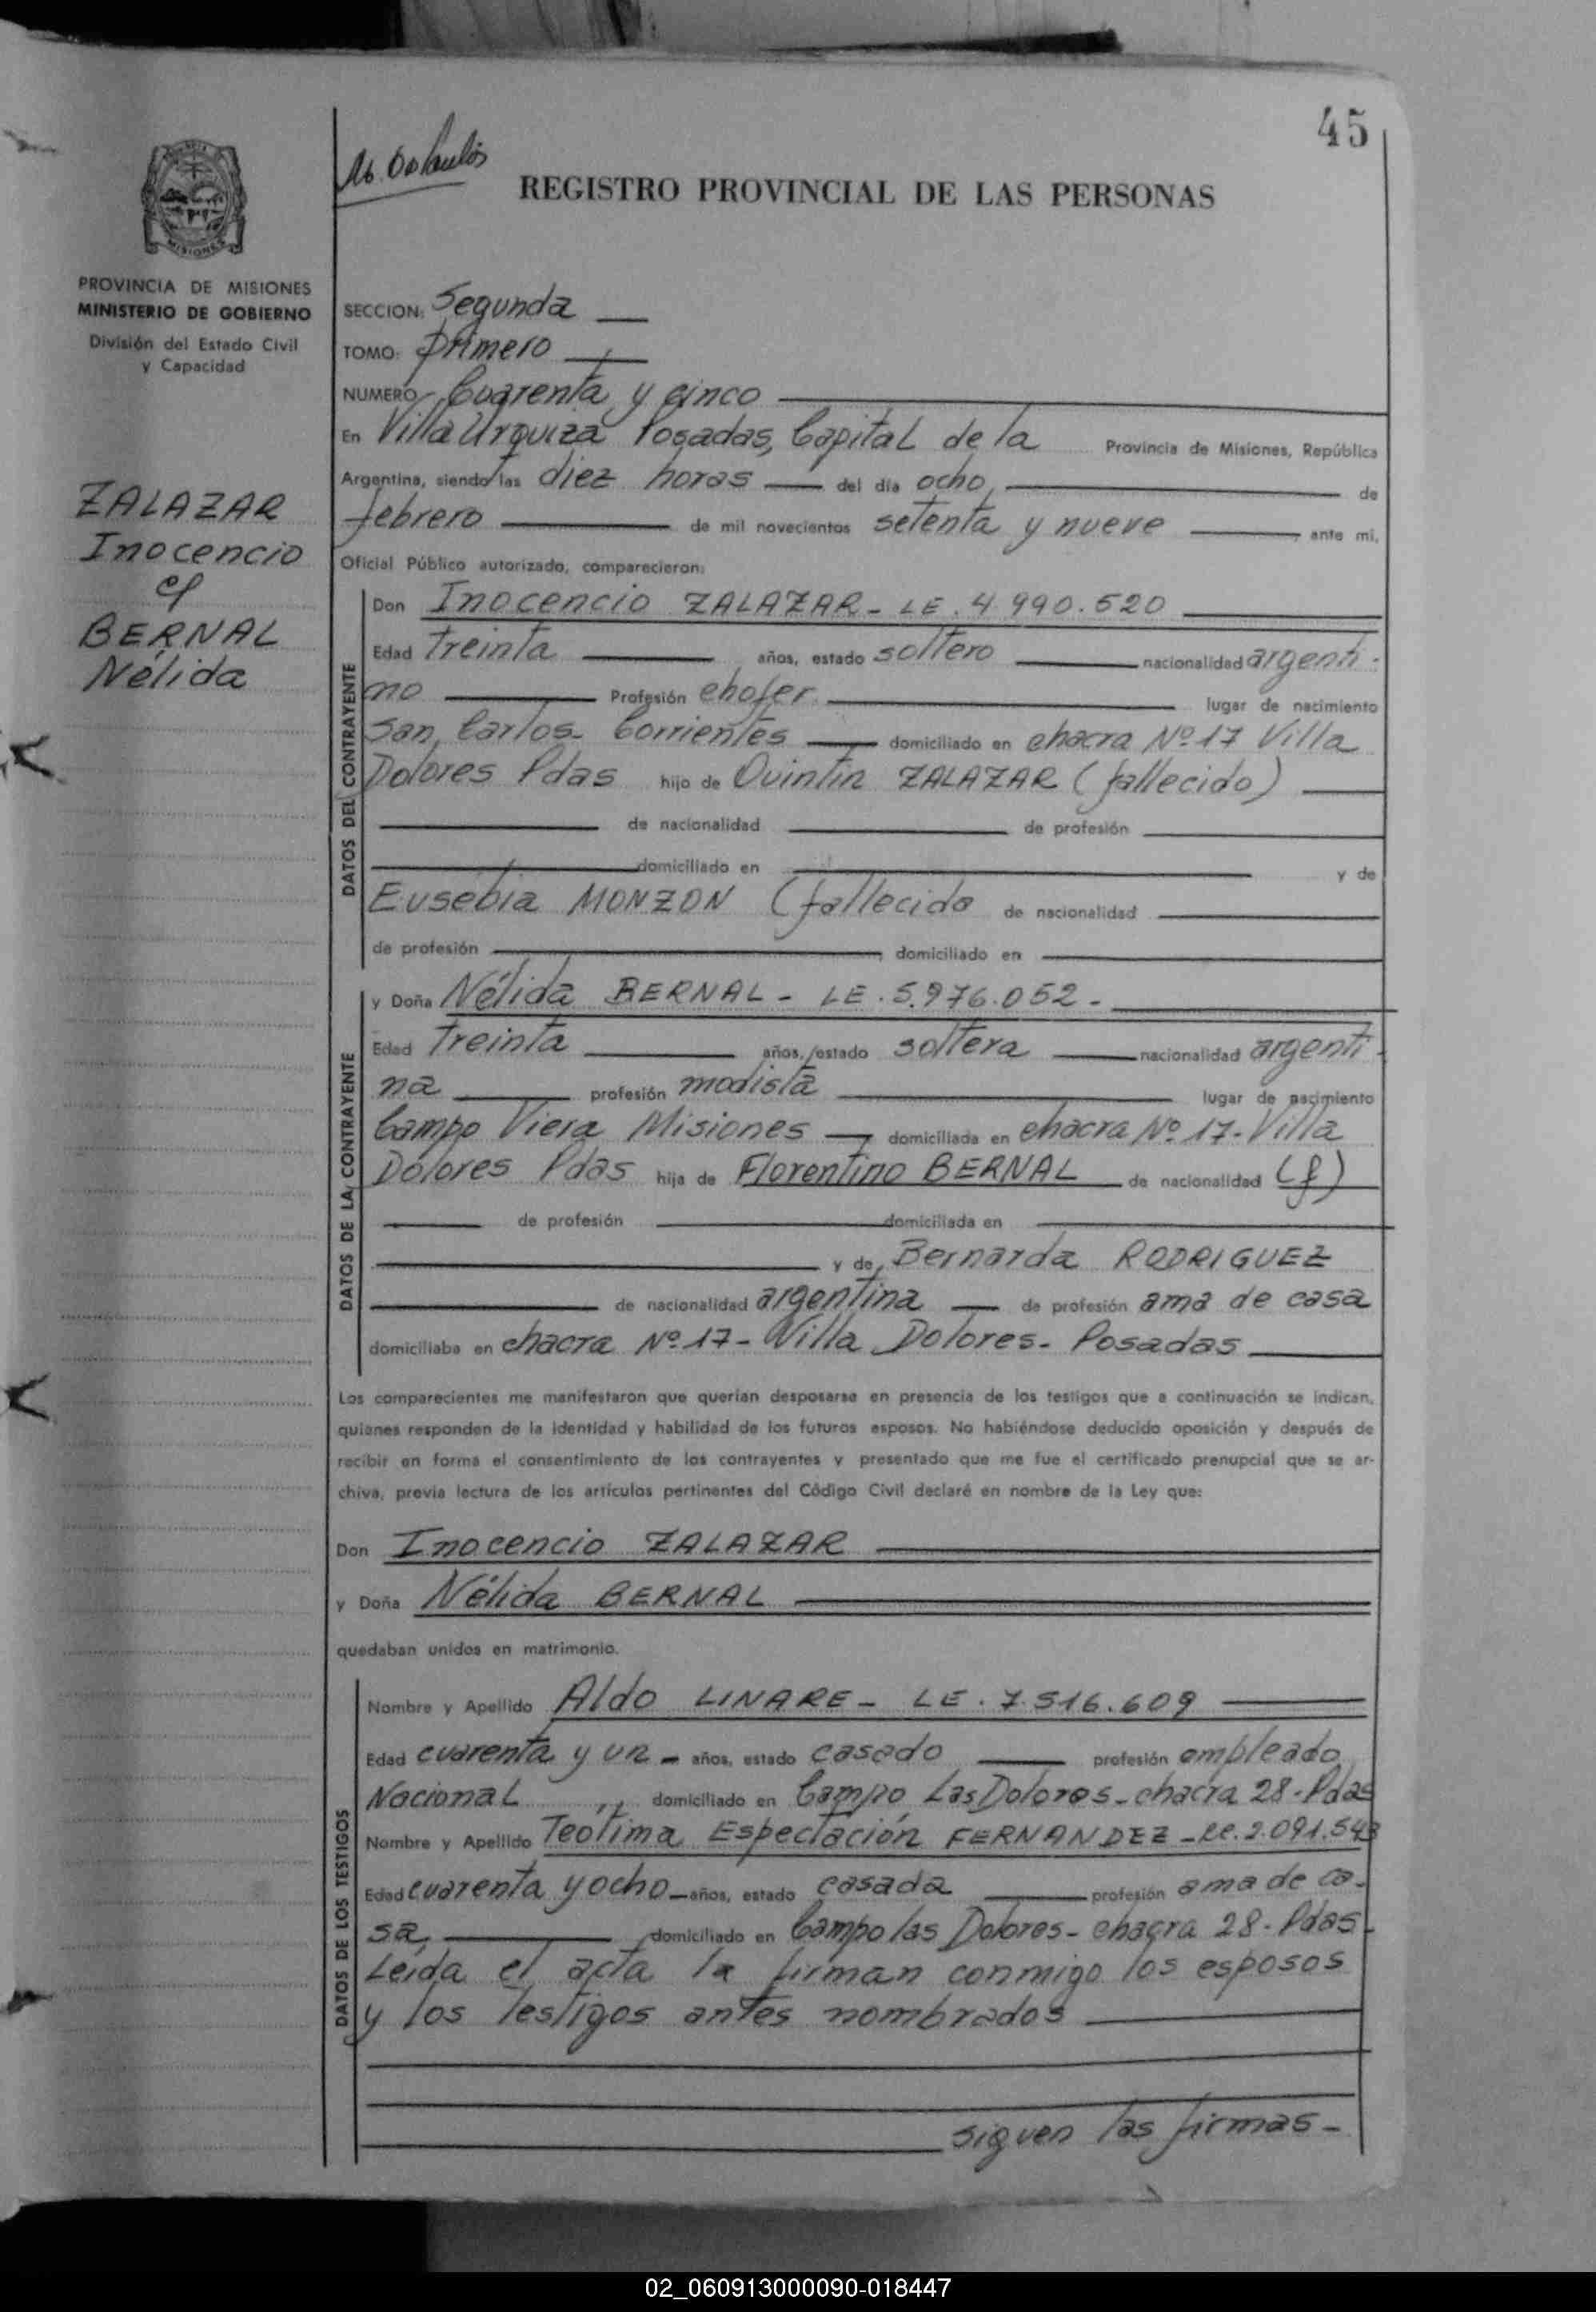 45
REGISTRO PROVINCIAL DE LAS PERSONAS
MISIONES
PROVINCIA DE MISIONES
MINISTERIO DE GOBIERNO
División del Estado Civil
y Capacidad
ZALAZAR
Inocencio
c/
BERNAL
Nélida
SECCION: Segunda
TOMO: primero
NUMERO Cuarenta y cinco
En Villa Urquiza Posadas, Capital de la Provincia de Misiones, República
Argentina, siendo las diez horas del día ocho, de
febrero de mil novecientos setenta y nueve, ante mi,
Oficial Público autorizado, comparecieron:
DATOS DEL CONTRAYENTE
Don Inocencio ZALAZAR - LE. 4.990.520
Edad treinta años, estado soltero nacionalidad argenti-
no Profesión chofer lugar de nacimiento
San Carlos Corrientes domiciliado en chacra Nº 17 Villa
Dolores Pdas hijo de Quintin ZALAZAR (fallecido)
de nacionalidad de profesión
domiciliado en y de
Eusebia MONZON (fallecida de nacionalidad
de profesión domiciliado en
DATOS DE LA CONTRAYENTE
y Doña Nélida BERNAL - LE. 5.976.052 -
Edad treinta años, estado soltera nacionalidad argenti-
na profesión modista lugar de nacimiento
Campo Viera Misiones domiciliada en chacra Nº 17 - Villa
Dolores Pdas hija de Florentino BERNAL de nacionalidad (f)
de profesión domiciliada en
y de Bernarda RODRIGUEZ
de nacionalidad argentina de profesión ama de casa
domiciliaba en chacra Nº 17 - Villa Dolores - Posadas
Los comparecientes me manifestaron que querían desposarse en presencia de los testigos que a continuación se indican,
quienes responden de la identidad y habilidad de los futuros esposos. No habiéndose deducido oposición y después de
recibir en forma el consentimiento de los contrayentes y presentado que me fue el certificado prenupcial que se ar-
chiva, previa lectura de los artículos pertinentes del Código Civil declaré en nombre de la Ley que:
Don Inocencio ZALAZAR
y Doña Nélida BERNAL
quedaban unidos en matrimonio.
DATOS DE LOS TESTIGOS
Nombre y Apellido Aldo LINARE - LE. 7.516.609
Edad cuarenta y un - años, estado casado profesión empleado
Nacional domiciliado en Campo Las Dolores - chacra 28 - Pdas
Nombre y Apellido Teotima Espectación FERNANDEZ - LE. 2.091.543
Edad cuarenta y ocho - años, estado casada profesión ama de ca-
sa, domiciliado en Campo las Dolores - chacra 28 - Pdas -
Leida el acta la firman conmigo los esposos
y los testigos antes nombrados
siguen las firmas -
02_060913000090-018447